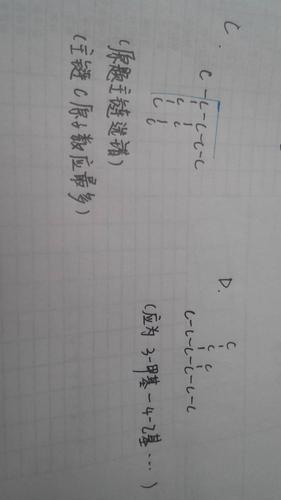 C.
C-C-C-C-C
C C
C C
(原题主链选错)
(主链C原子数应最多)
D.
C
C C
C-C-C-C-C-C
(应为 3-甲基-4-乙基…)